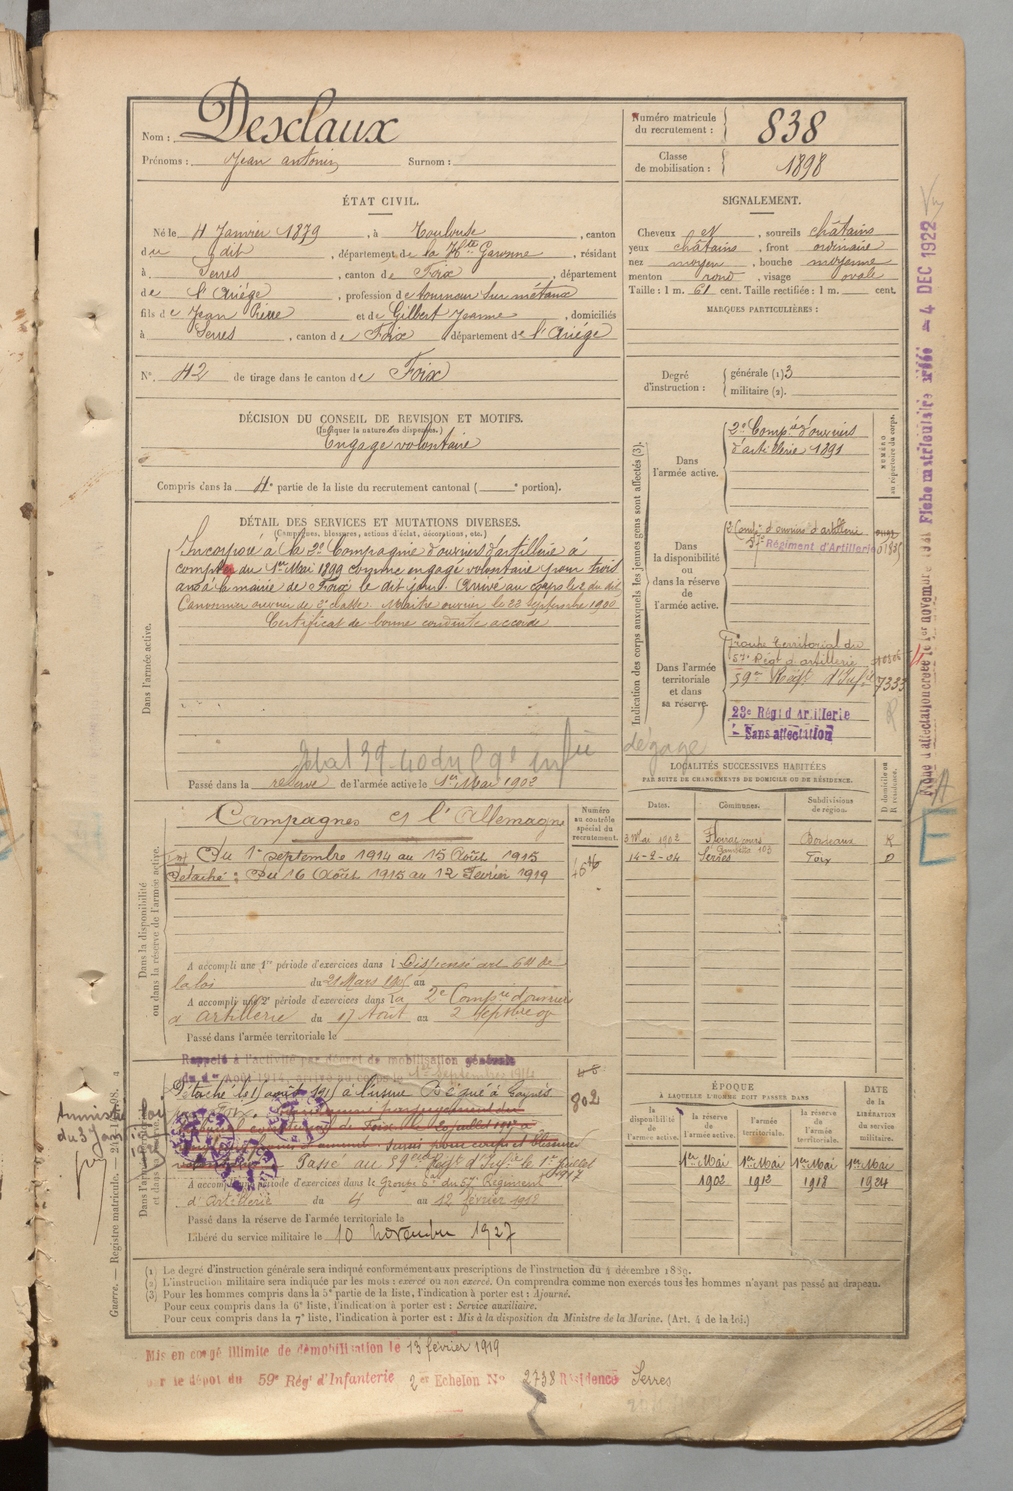 Nom : Desclaux
Prénoms : Jean antonin Surnom :
Numéro matricule du recrutement : 838
Classe de mobilisation : 1898
ÉTAT CIVIL.
Né le 4 Janvier 1879, à Toulouse, canton
du dit, département de la Hte Garonne, résidant
à Serres, canton de Foix, département
de l'Ariége, profession de tourneur sur métaux
fils de Jean Pierre et de Gilbert Jeanne, domiciliés
à Serres, canton de Foix département de l'Ariége
N° 42 de tirage dans le canton de Foix
SIGNALEMENT.
Cheveux , sourcils châtains
yeux châtains, front ordinaire
nez moyen, bouche moyenne
menton rond, visage ovale
Taille : 1 m. 61 cent. Taille rectifiée : 1 m. cent.
MARQUES PARTICULIÈRES :
Degré d'instruction : générale (1) 3
militaire (2).
DÉCISION DU CONSEIL DE REVISION ET MOTIFS.
(Indiquer la nature des dispenses.)
Engagé volontaire
Compris dans la 4e partie de la liste du recrutement cantonal ( e portion).
DÉTAIL DES SERVICES ET MUTATIONS DIVERSES.
(Campagnes, blessures, actions d'éclat, décorations, etc.)
Dans l'armée active.
Incorporé à la 2e Compagnie d'ouvriers d'artillerie à
compter du 1er Mai 1899 comme engagé volontaire pour trois
ans à la mairie de Foix le dit jour. Arrivé au corps le 2 du dit
Canonnier ouvrier de 2e classe. Maître ouvrier le 23 Septembre 1900
Certificat de bonne conduite accordé
Passé dans la réserve de l'armée active le 1er Mai 1902
Indication des corps auxquels les jeunes gens sont affectés (3).
NUMÉRO au répertoire du corps.
Dans l'armée active.
2e Compie d'ouvriers
d'artillerie 1891
Dans la disponibilité ou dans la réserve de l'armée active.
2 Compie d'ouvriers d'artillerie
57e Régiment d'Artillerie
Dans l'armée territoriale et dans sa réserve.
Groupe territorial du
57e Régt d'artillerie
59me Régt d'Infie 7333
23e Régt d'Artillerie
Sans affectation
dégagé
LOCALITÉS SUCCESSIVES HABITÉES
PAR SUITE DE CHANGEMENTS DE DOMICILE OU DE RÉSIDENCE.
Dates. Communes. Subdivisions de région. D domicile ou R résidence.
3 Mai 1902 Floirac Bordeaux R
14-2-04 Serres Foix D
Dans la disponibilité ou dans la réserve de l'armée active.
Numéro au contrôle spécial du recrutement.
Campagnes c/ l'Allemagne
Du 1er septembre 1914 au 15 Août 1915
Détaché : Du 16 Août 1915 au 12 Février 1919
A accompli une 1re période d'exercices dans l Dispensé art 6 de
la loi du 21 Mars 1905 au
A accompli une 2e période d'exercices dans la 2e Compie d'ouvriers
d'artillerie du 17 Août au 2 Septbre 07
Passé dans l'armée territoriale le
Rappelé à l'activité par décret de mobilisation générale
du 1er Août 1914, arrivé au corps le 1er Septembre 1914
Détaché le 16 août 1915 à l'usine
802
Passé au 59e Régt d'Infie le 1er Juillet 1917
A accompli une période d'exercices dans le Groupe du 57e Régiment
d'Artillerie du 4 au 12 février
Passé dans la réserve de l'armée territoriale le
Libéré du service militaire le 10 novembre 1927
ÉPOQUE
À LAQUELLE L'HOMME DOIT PASSER DANS
la disponibilité de l'armée active. la réserve de l'armée active. l'armée territoriale. la réserve de l'armée territoriale. DATE de la LIBÉRATION du service militaire.
1er Mai 1902 1er Mai 1912 1er Mai 1918 1er Mai 1924
(1) Le degré d'instruction générale sera indiqué conformément aux prescriptions de l'instruction du 4 décembre 1889.
(2) L'instruction militaire sera indiquée par les mots : exercé ou non exercé. On comprendra comme non exercés tous les hommes n'ayant pas passé au drapeau.
(3) Pour les hommes compris dans la 5e partie de la liste, l'indication à porter est : Ajourné.
Pour ceux compris dans la 6e liste, l'indication à porter est : Service auxiliaire.
Pour ceux compris dans la 7e liste, l'indication à porter est : Mis à la disposition du Ministre de la Marine. (Art. 4 de la loi.)
Mis en congé illimité de démobilisation le 13 février 1919
par le dépôt du 59e Régt d'Infanterie 2e Echelon N° 2738 Résidence Serres
Guerre. — Registre matricule.
4 DEC 1922
E